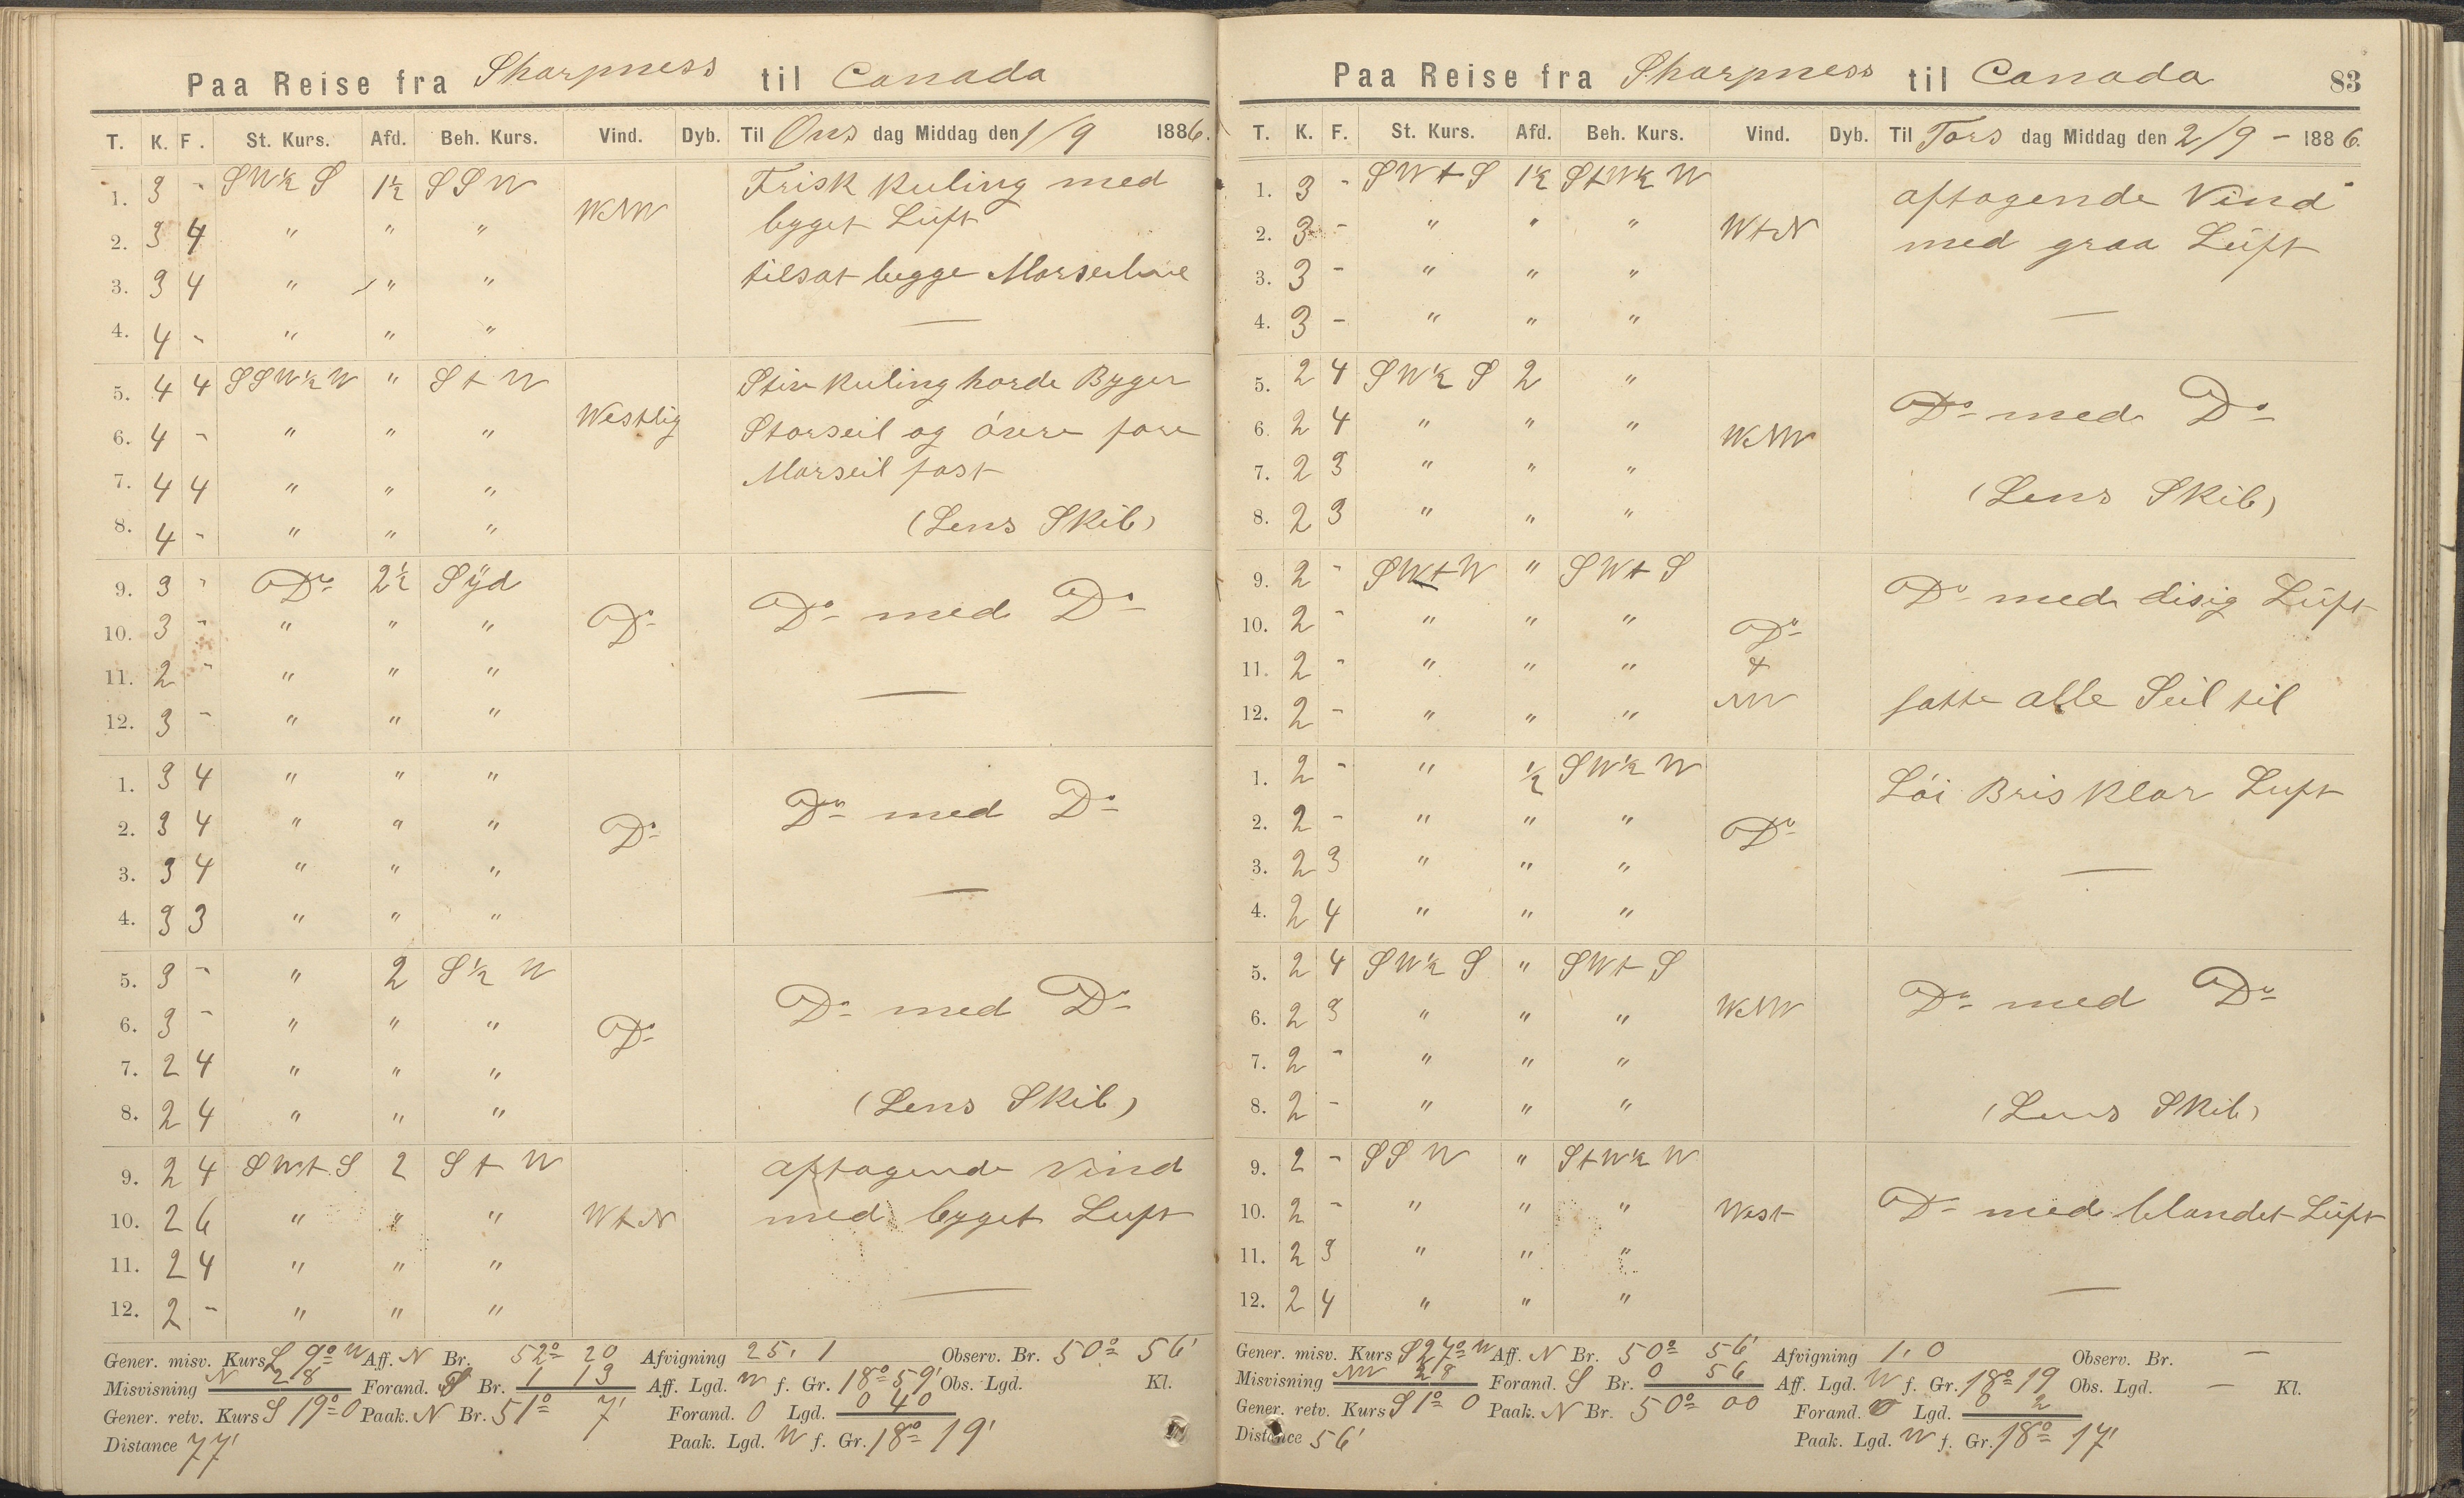 Paa Reise fra Sharpness til Canada
T. K. F. St. Kurs. Afd. Beh. Kurs. Vind. Dyb. Til Ons dag Middag den 1/9 1886.
1. 3 - SW½ S 1½ SSW Frisk Kuling med
2. 3 4 " " " WNW byget Lüft
3. 3 4 " " " tilsat begge
4. 4 - " " "
5. 4 4 SSW½W " S t W Stiv Kuling harde Byger
6. 4 - " " " Westlig Storseil og övere fore
7. 4 4 " " " Marseil fast
8. 4 - " " " (Lens Skib)
9. 3 - Do 2½ Syd
10. 3 - " " " Do Do med Do
11. 2 - " " "
12. 3 - " " "
1. 3 4 " " "
2. 3 4 " " " Do Do med Do
3. 3 4 " " "
4. 3 3 " " "
5. 3 - " 2 S½ W
6. 3 - " " " Do Do med Do
7. 2 4 " " "
8. 2 4 " " " (Lens Skib)
9. 2 4 SWt S 2 S t W aftagende Vind
10. 2 6 " " " WtN med byget Luft
11. 2 4 " " "
12. 2 - " " "
Gener. misv. Kurs S 9° W Aff. N Br. 52° 20 Afvigning 25,1 Observ. Br. 50° 56'
Misvisning N 28 Forand. S Br. 1 13 Aff. Lgd. W f. Gr. 18° 59' Obs. Lgd. Kl.
Gener. retv. Kurs S 19° O Paak. N Br. 51° 7' Forand. O Lgd. 0 40
Distance 77' Paak. Lgd. W f. Gr. 18° 19'
Paa Reise fra Sharpness til Canada 83
T. K. F. St. Kurs. Afd. Beh. Kurs. Vind. Dyb. Til Tors dag Middag den 2/9 - 1886.
1. 3 - SWt S 1½ StW½ W aftagende Vind
2. 3 - " " " WtN med graa Lüft
3. 3 - " " "
4. 3 - " " "
5. 2 4 SW½ S 2 "
6. 2 4 " " " WNW Do med Do
7. 2 3 " " "
8. 2 3 " " " (Lens Skib)
9. 2 - SWtW " SWt S Do med disig Lüft
10. 2 - " " " Do
11. 2 - " " " t
12. 2 - " " " NW satte alle Seil til
1. 2 - " ½ SW½ W Löi Bris klar Luft
2. 2 - " " " Do
3. 2 3 " " "
4. 2 4 " " "
5. 2 4 SW½ S " SWt S
6. 2 3 " " " WNW Do med Do
7. 2 - " " "
8. 2 - " " " (Lens Skib)
9. 2 - SSW " StW½ W
10. 2 - " " " West Do med blandet Lüft
11. 2 3 " " "
12. 2 4 " " "
Gener. misv. Kurs S 27° W Aff. N Br. 50° 56' Afvigning 1,0 Observ. Br. -
Misvisning NW 28 Forand. S Br. 0 56 Aff. Lgd. W f. Gr. 18° 19 Obs. Lgd. - Kl.
Gener. retv. Kurs S 1° O Paak. N Br. 50° 00 Forand. O Lgd. 0 2
Distance 56' Paak. Lgd. W f. Gr. 18° 17'